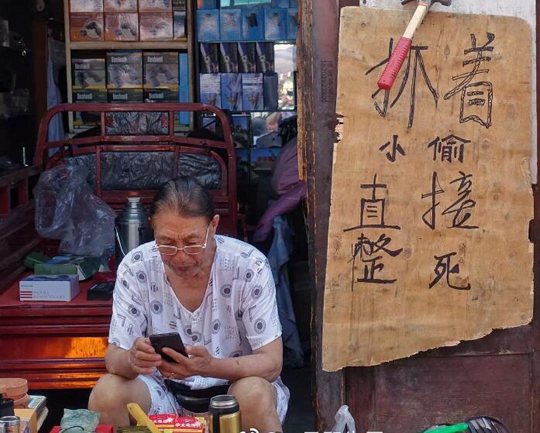 抓着
小偷
直接
整死